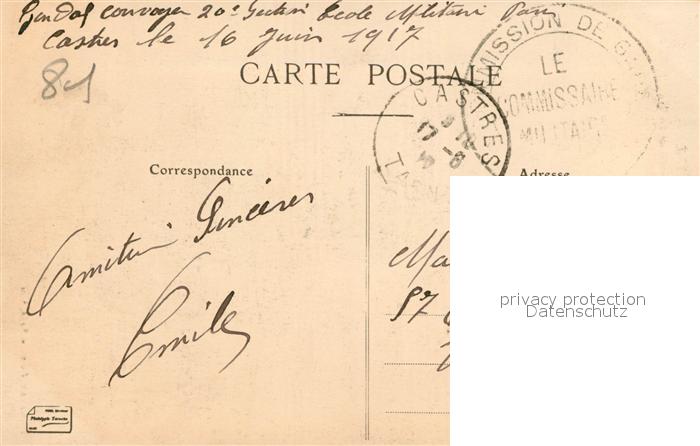 convoyeur 20e Section Ecole Militaire Paris
Castres le 16 Juin 1917
81
CARTE POSTALE
MISSION DE GARE
LE
COMMISSAIRE
MILITAIRE
CASTRES
TARN
Correspondance
Adresse
Amitiés Sincères
Emile
Ma
87
privacy protection
Datenschutz